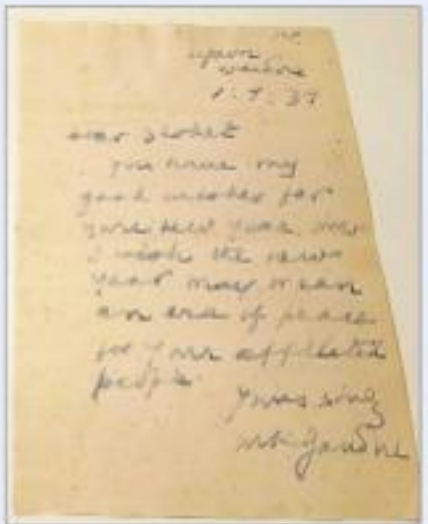 Wardha
Dear Shohet
You have my
good wishes for
your new year. How
I wish the new
year may mean
an era of peace
for your afflicted
people.
Yours sincly
MKGandhi